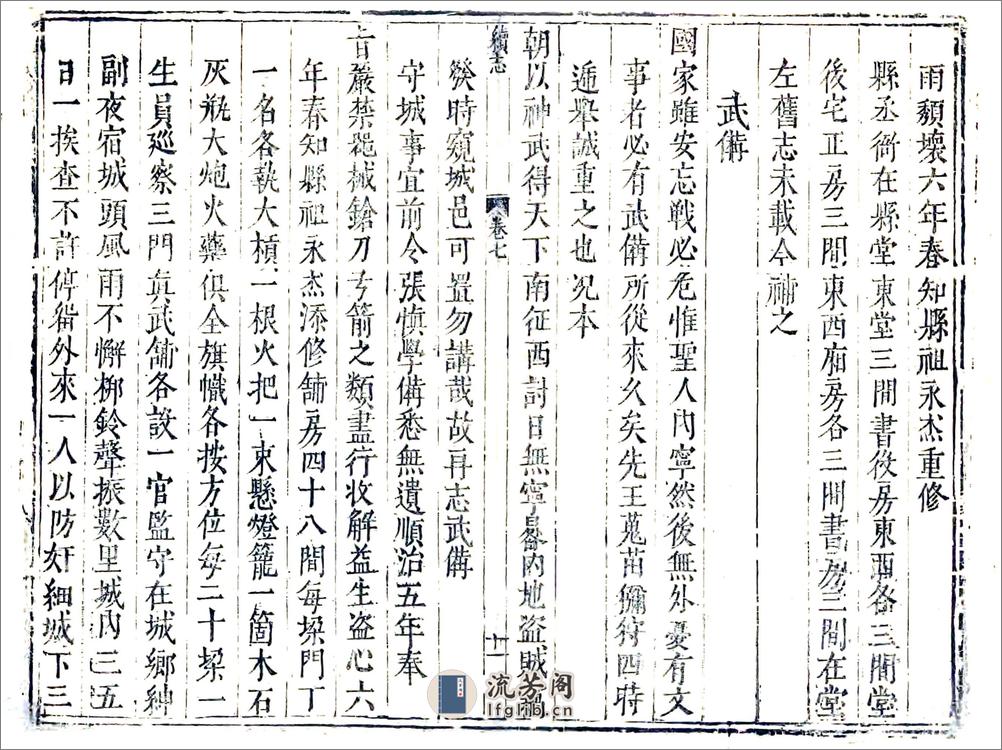 雨頹壞六年春知縣祖永杰重修
縣丞衙在縣堂東堂三間書役房東西各三間堂
後宅正房三間東西廂房各三間書房三間在堂
左舊志未載今補之
武備
國家雖安忘戰必危惟聖人內寧然後無外憂有文
事者必有武備所從來久矣先王蒐苗獮狩四時
遞舉誠重之也况本
續志
卷七
十一
朝以神武得天下南征西討日無寧晷內地盜賊
發時窺城邑可置勿講哉故再志武備
守城事宜前令張慎學備悉無遺順治五年奉
旨嚴禁器械鎗刀弓箭之類盡行收解益生盗心六
年春知縣祖永杰添修舖房四十八間每垜門丁
一名各執大槓一根火把一束懸燈籠一箇木石
灰瓶大炮火藥俱全旗幟各按方位每二十垜一
生員廵察三門真武舖各設一官監守在城鄉紳
副夜宿城頭風雨不懈梆鈴聲振數里城內三五
日一挨查不許停留外來一人以防奸細城下三
流芳阁
lfglib.cn